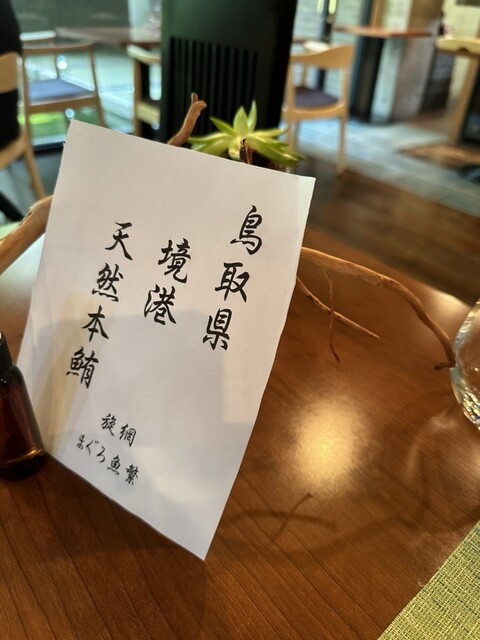 鳥取県
境港
天然本鮪
旋網
まぐろ魚繋